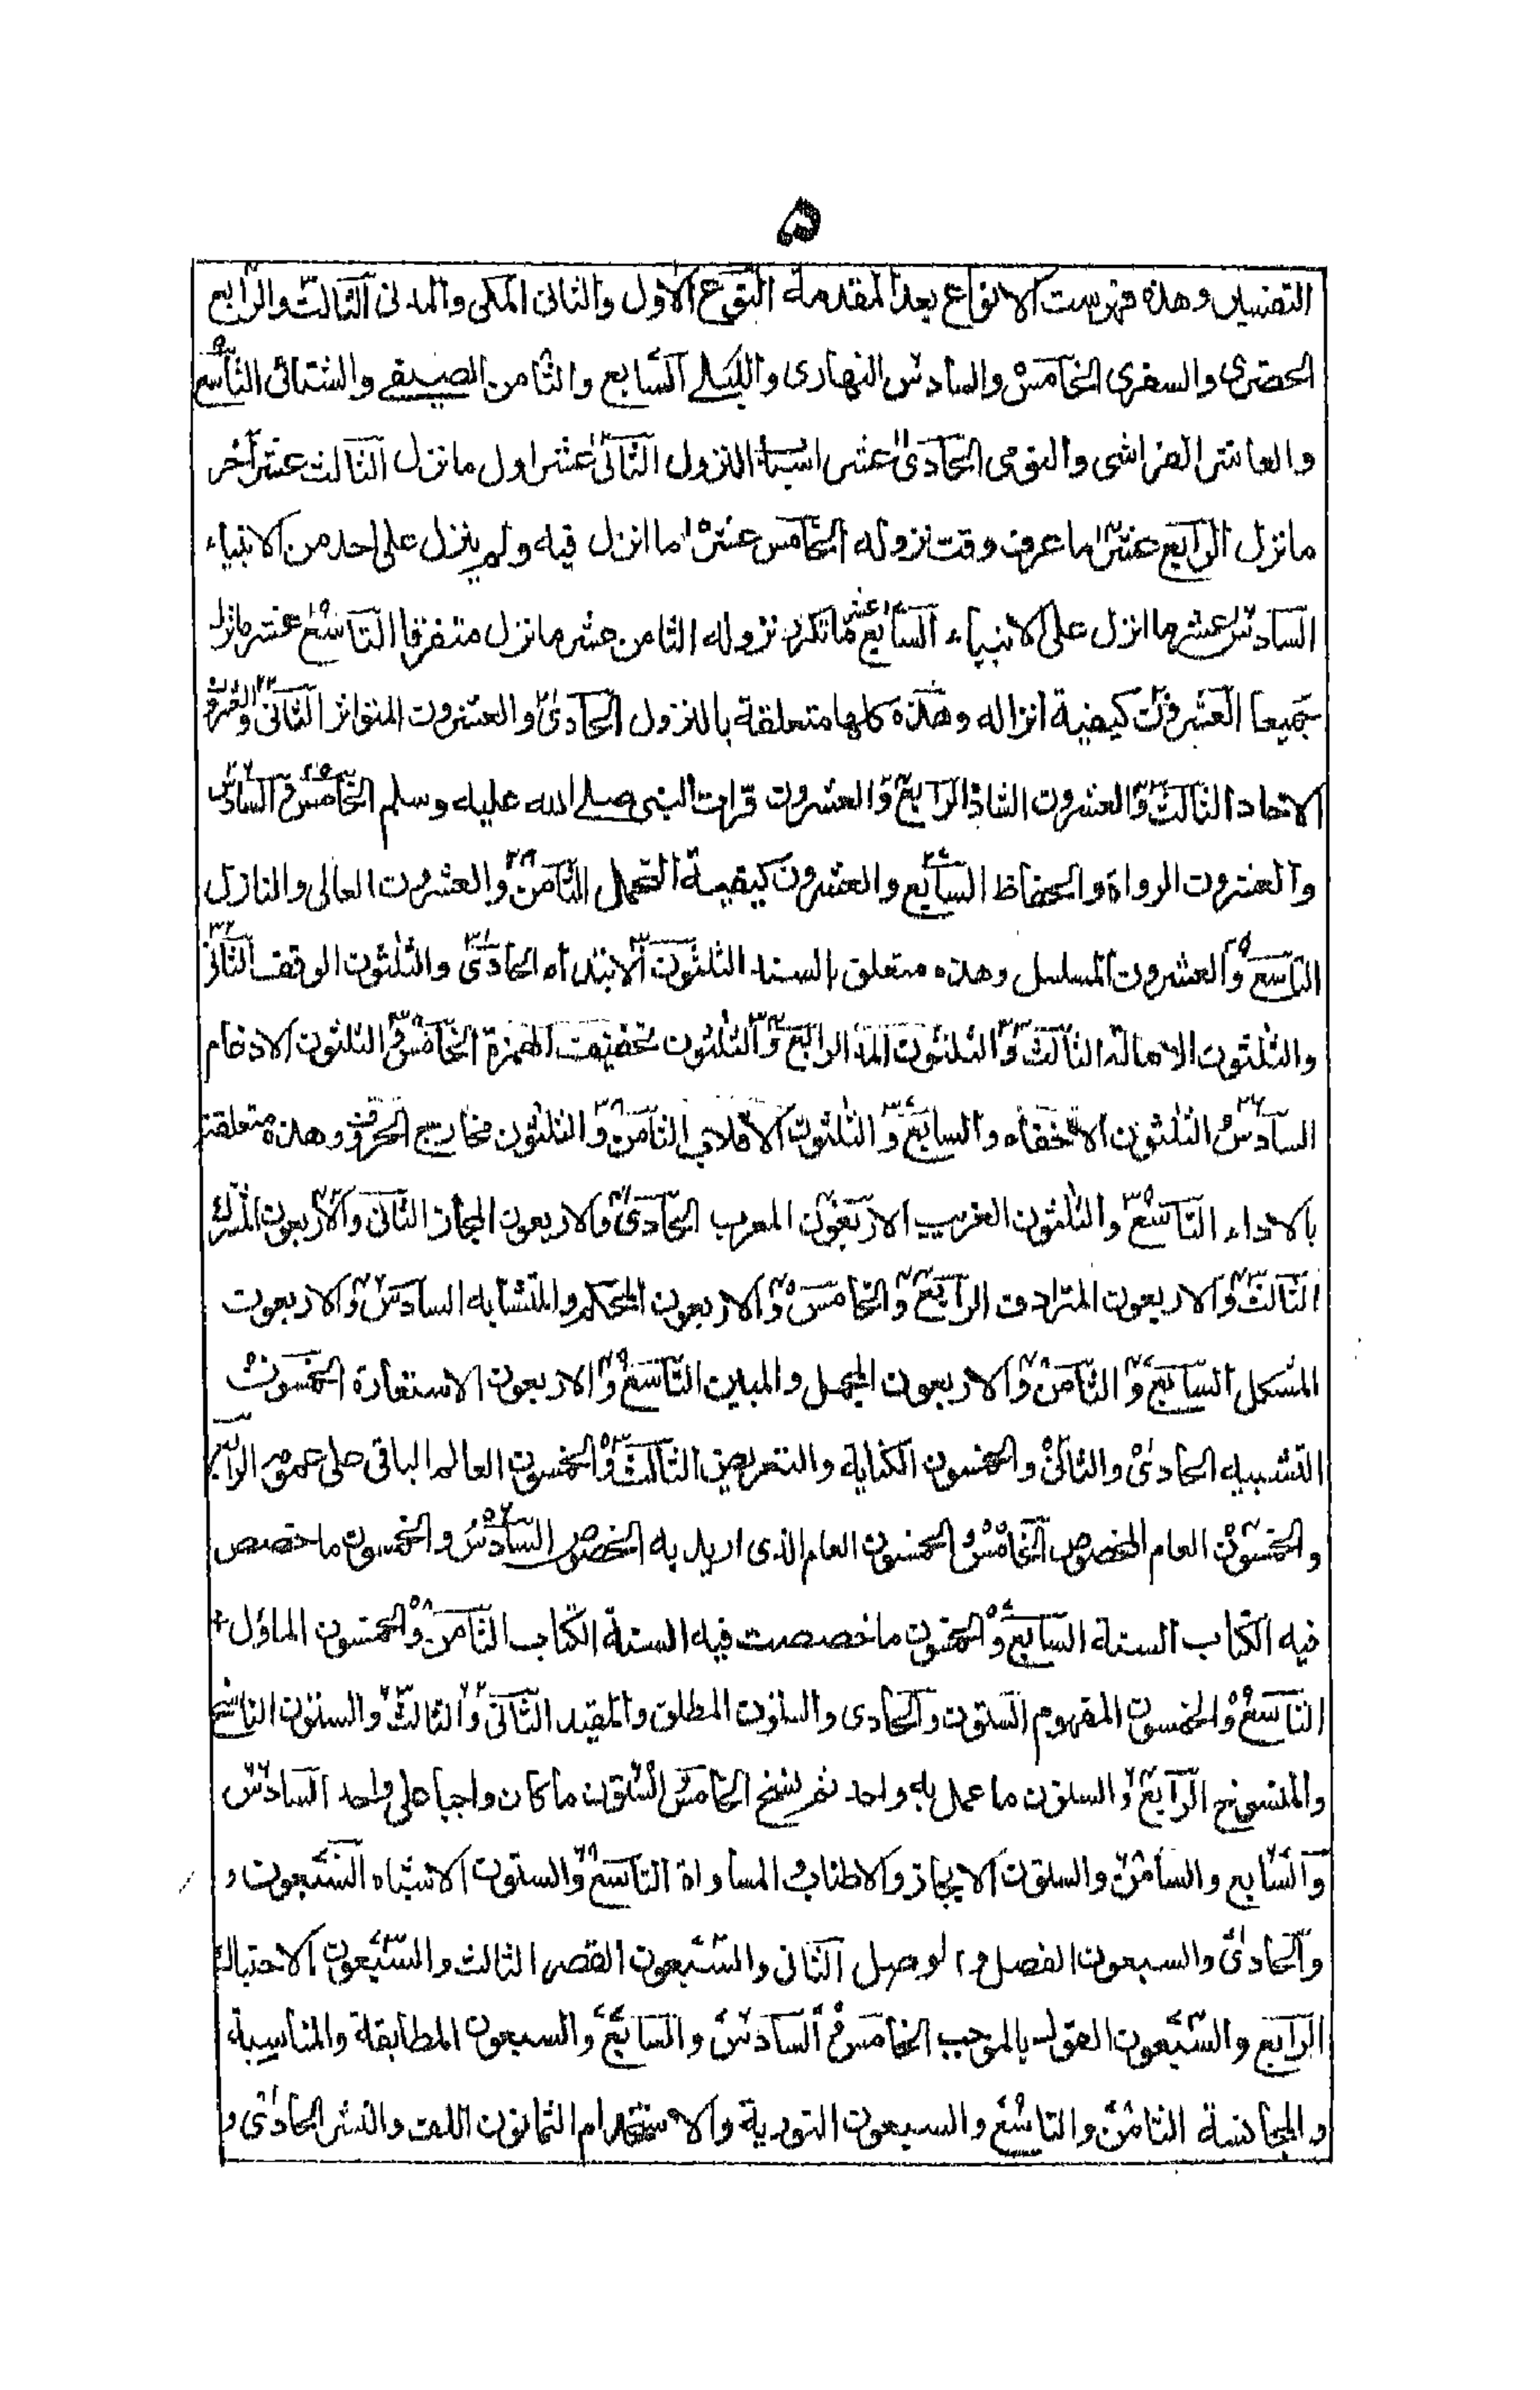 ۵
التفسير وهذه فهرست الانواع بعد المقدمة النوع الاول والثانى المكى والمدنى الثالث والرابع
الحضرى والسفرى الخامس والسادس النهارى والليلے السابع والثامن الصيفے والشتائى التاسع
والعاشر الفراشى والنومى الحادى عشر اسباب النزول الثانى عشر اول ما نزل الثالث عشر آخر
ما نزل الرابع عشر ما عرف وقت نزوله الخامس عشر ما انزل فيه ولم ينزل على احد من الانبياء
السادس عشر ما انزل على الانبياء السابع عشر ما تكرر نزوله الثامن عشر ما نزل متفرقا التاسع عشر ما نزل
جميعا العشرون كيفية انزاله وهذه كلها متعلقة بالنزول الحادى والعشرون المتواتر الثانى والعشرون
الاحاد الثالث والعشرون الشاذ الرابع والعشرون قرات النبى صلے الله عليه وسلم الخامس و السادس
والعشرون الرواة والحفاظ السابع والعشرون كيفية التحمل الثامن والعشرون العالى والنازل
التاسع والعشرون المسلسل وهذه متعلق بالسند الثلثون الابتداء الحادى والثلثون الوقف الثانى
والثلثون الامالة الثالث والثلثون المد الرابع والثلثون تخفيف الهمزة الخامس و الثلثون الادغام
السادس و الثلثون الاخفاء والسابع والثلثون الاقلاب الثامن والثلثون مخارج الحروف وهذه متعلقة
بالاداء التاسع والثلثون الغريب الاربعون المعرب الحادى والاربعون المجاز الثانى والاربعون المشترك
الثالث والاربعون المترادف الرابع والخامس والاربعون المحكم والمتشابه السادس والاربعون
المشكل السابع والثامن والاربعون المجمل والمبين التاسع والاربعون الاستعارة الخمسون
التشبيه الحادى والثانى والخمسون الكناية والتعريض الثالث والخمسون العالم الباقى على عمومه الرابع
والخمسون العام المخصوص الخامس و الخمسون العام الذى اريد به الخصوص السادس والخمسون ما خصص
فيه الكتاب السنة السابع والخمسون ما خصصت فيه السنة الكتاب الثامن والخمسون الماؤل
التاسع والخمسون المفهوم الستون والحادى والستون المطلق والمقيد الثانى والثالث والستون الناسخ
والمنسوخ الرابع والستون ما عمل به واحد ثم نسخ الخامس و الستون ما كان واجبا على واحد السادس
والسابع والسامن والستون الايجاز والاطناب و المساواة التاسع والستون الاشباه السبعون و
والحادى والسبعون الفصل و الوصل الثانى والسبعون القصر الثالث والسبعون الاحتباك
الرابع والسبعون القول بالموجب الخامس و السادس والسابع والسبعون المطابقة والمناسبة
والمجانسة الثامن والتاسع والسبعون التورية والاستخدام الثمانون اللف والنشر الحادى و